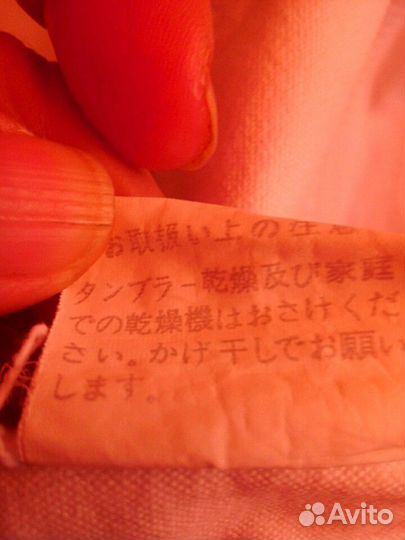 お取扱い上の注意
タンブラー乾燥及び家庭
での乾燥機はおさけくだ
さい。かげ干しでお願い
します。
Avito